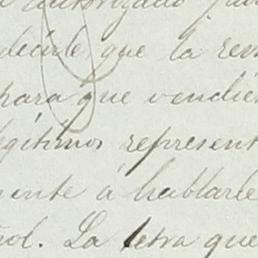 autorizado
decirle que la res
para que vendie
egítimos represent
mente á hablarle
ñol. La letra que